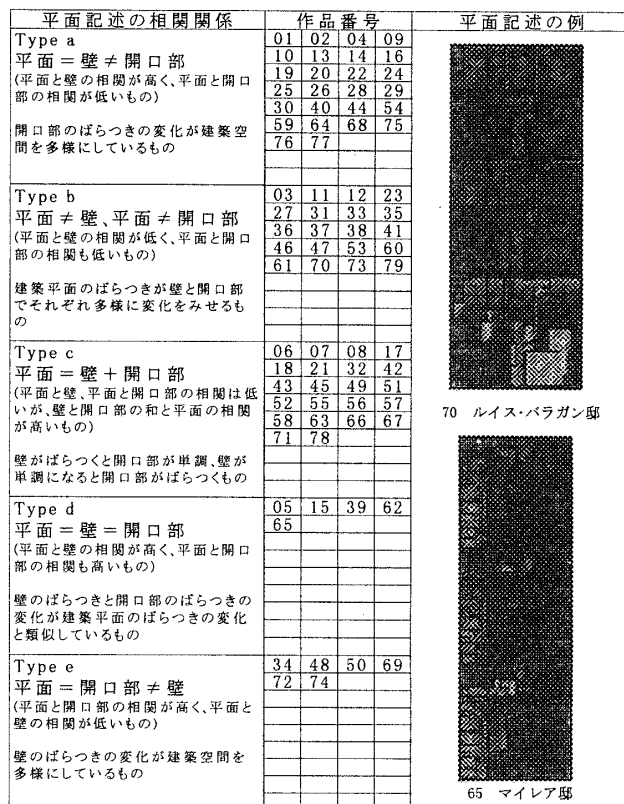 平面記述の相関関係 作品番号 平面記述の例
Type a
平面＝壁≠開口部
(平面と壁の相関が高く、平面と開口
部の相関が低いもの)
開口部のばらつきの変化が建築空
間を多様にしているもの
01 02 04 09
10 13 14 16
19 20 22 24
25 26 28 29
30 40 44 54
59 64 68 75
76 77
Type b
平面≠壁、平面≠開口部
(平面と壁の相関が低く、平面と開口
部の相関も低いもの)
建築平面のばらつきが壁と開口部
でそれぞれ多様に変化をみせるも
の
03 11 12 23
27 31 33 35
36 37 38 41
46 47 53 60
61 70 73 79
Type c
平面＝壁＋開口部
(平面と壁、平面と開口部の相関は低
いが、壁と開口部の和と平面の相関
が高いもの)
壁がばらつくと開口部が単調、壁が
単調になると開口部がばらつくもの
06 07 08 17
18 21 32 42
43 45 49 51
52 55 56 57
58 63 66 67
71 78
Type d
平面＝壁＝開口部
(平面と壁の相関が高く、平面と開口
部の相関も高いもの)
壁のばらつきと開口部のばらつきの
変化が建築平面のばらつきの変化
と類似しているもの
05 15 39 62
65
Type e
平面＝開口部≠壁
(平面と開口部の相関が高く、平面と
壁の相関が低いもの)
壁のばらつきの変化が建築空間を
多様にしているもの
34 48 50 69
72 74
70 ルイス・バラガン邸
65 マイレア邸